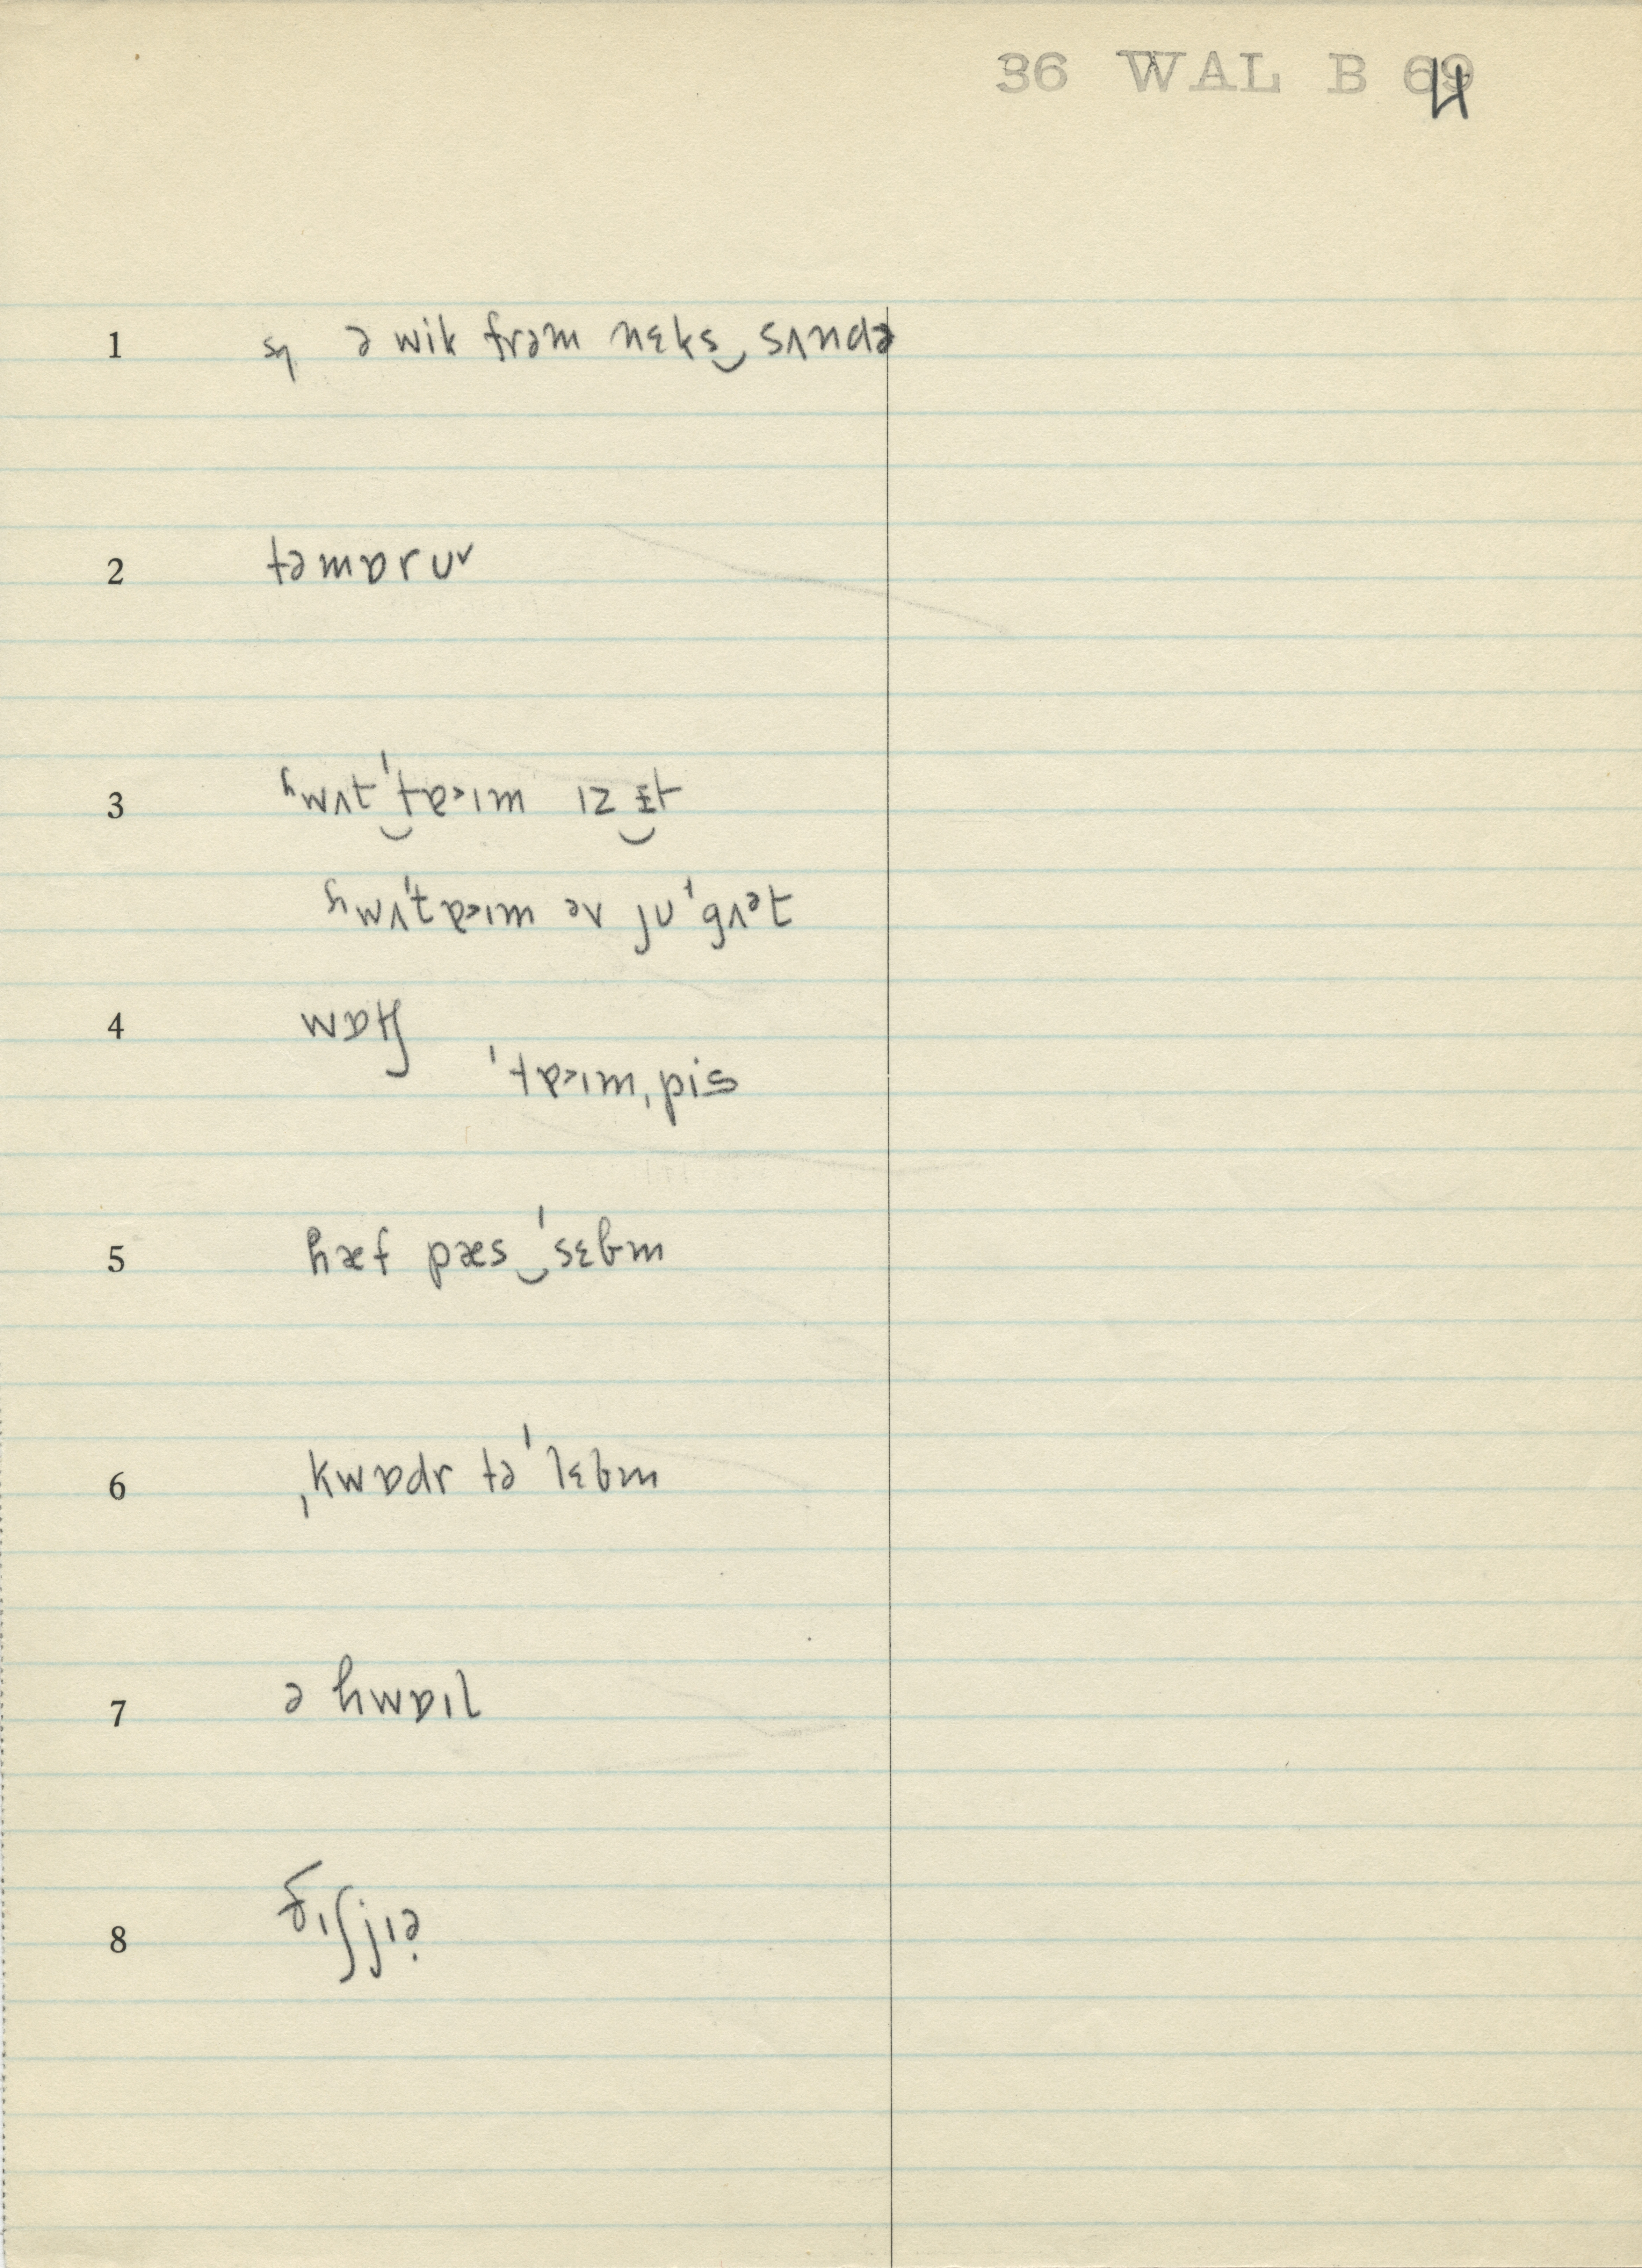 36 WAL B 69 4
1 sɥ ə wik frəm nɛks‿sʌndə
2 təmɒruᵛ
3 hwʌt‿ˈtɐ˃ɪm ɪz‿ɪt
hwʌˈtɐ˃ɪm əv juˈgʌᵊt
4 wɒtʃ
ˈtɐ˃ɪmˌpis
5 hæf pæs‿ˈsɛbm
6 ˌkwɒdr təˈlɛbm
7 ə hwɒɪl
8 ðɪʃjɪə